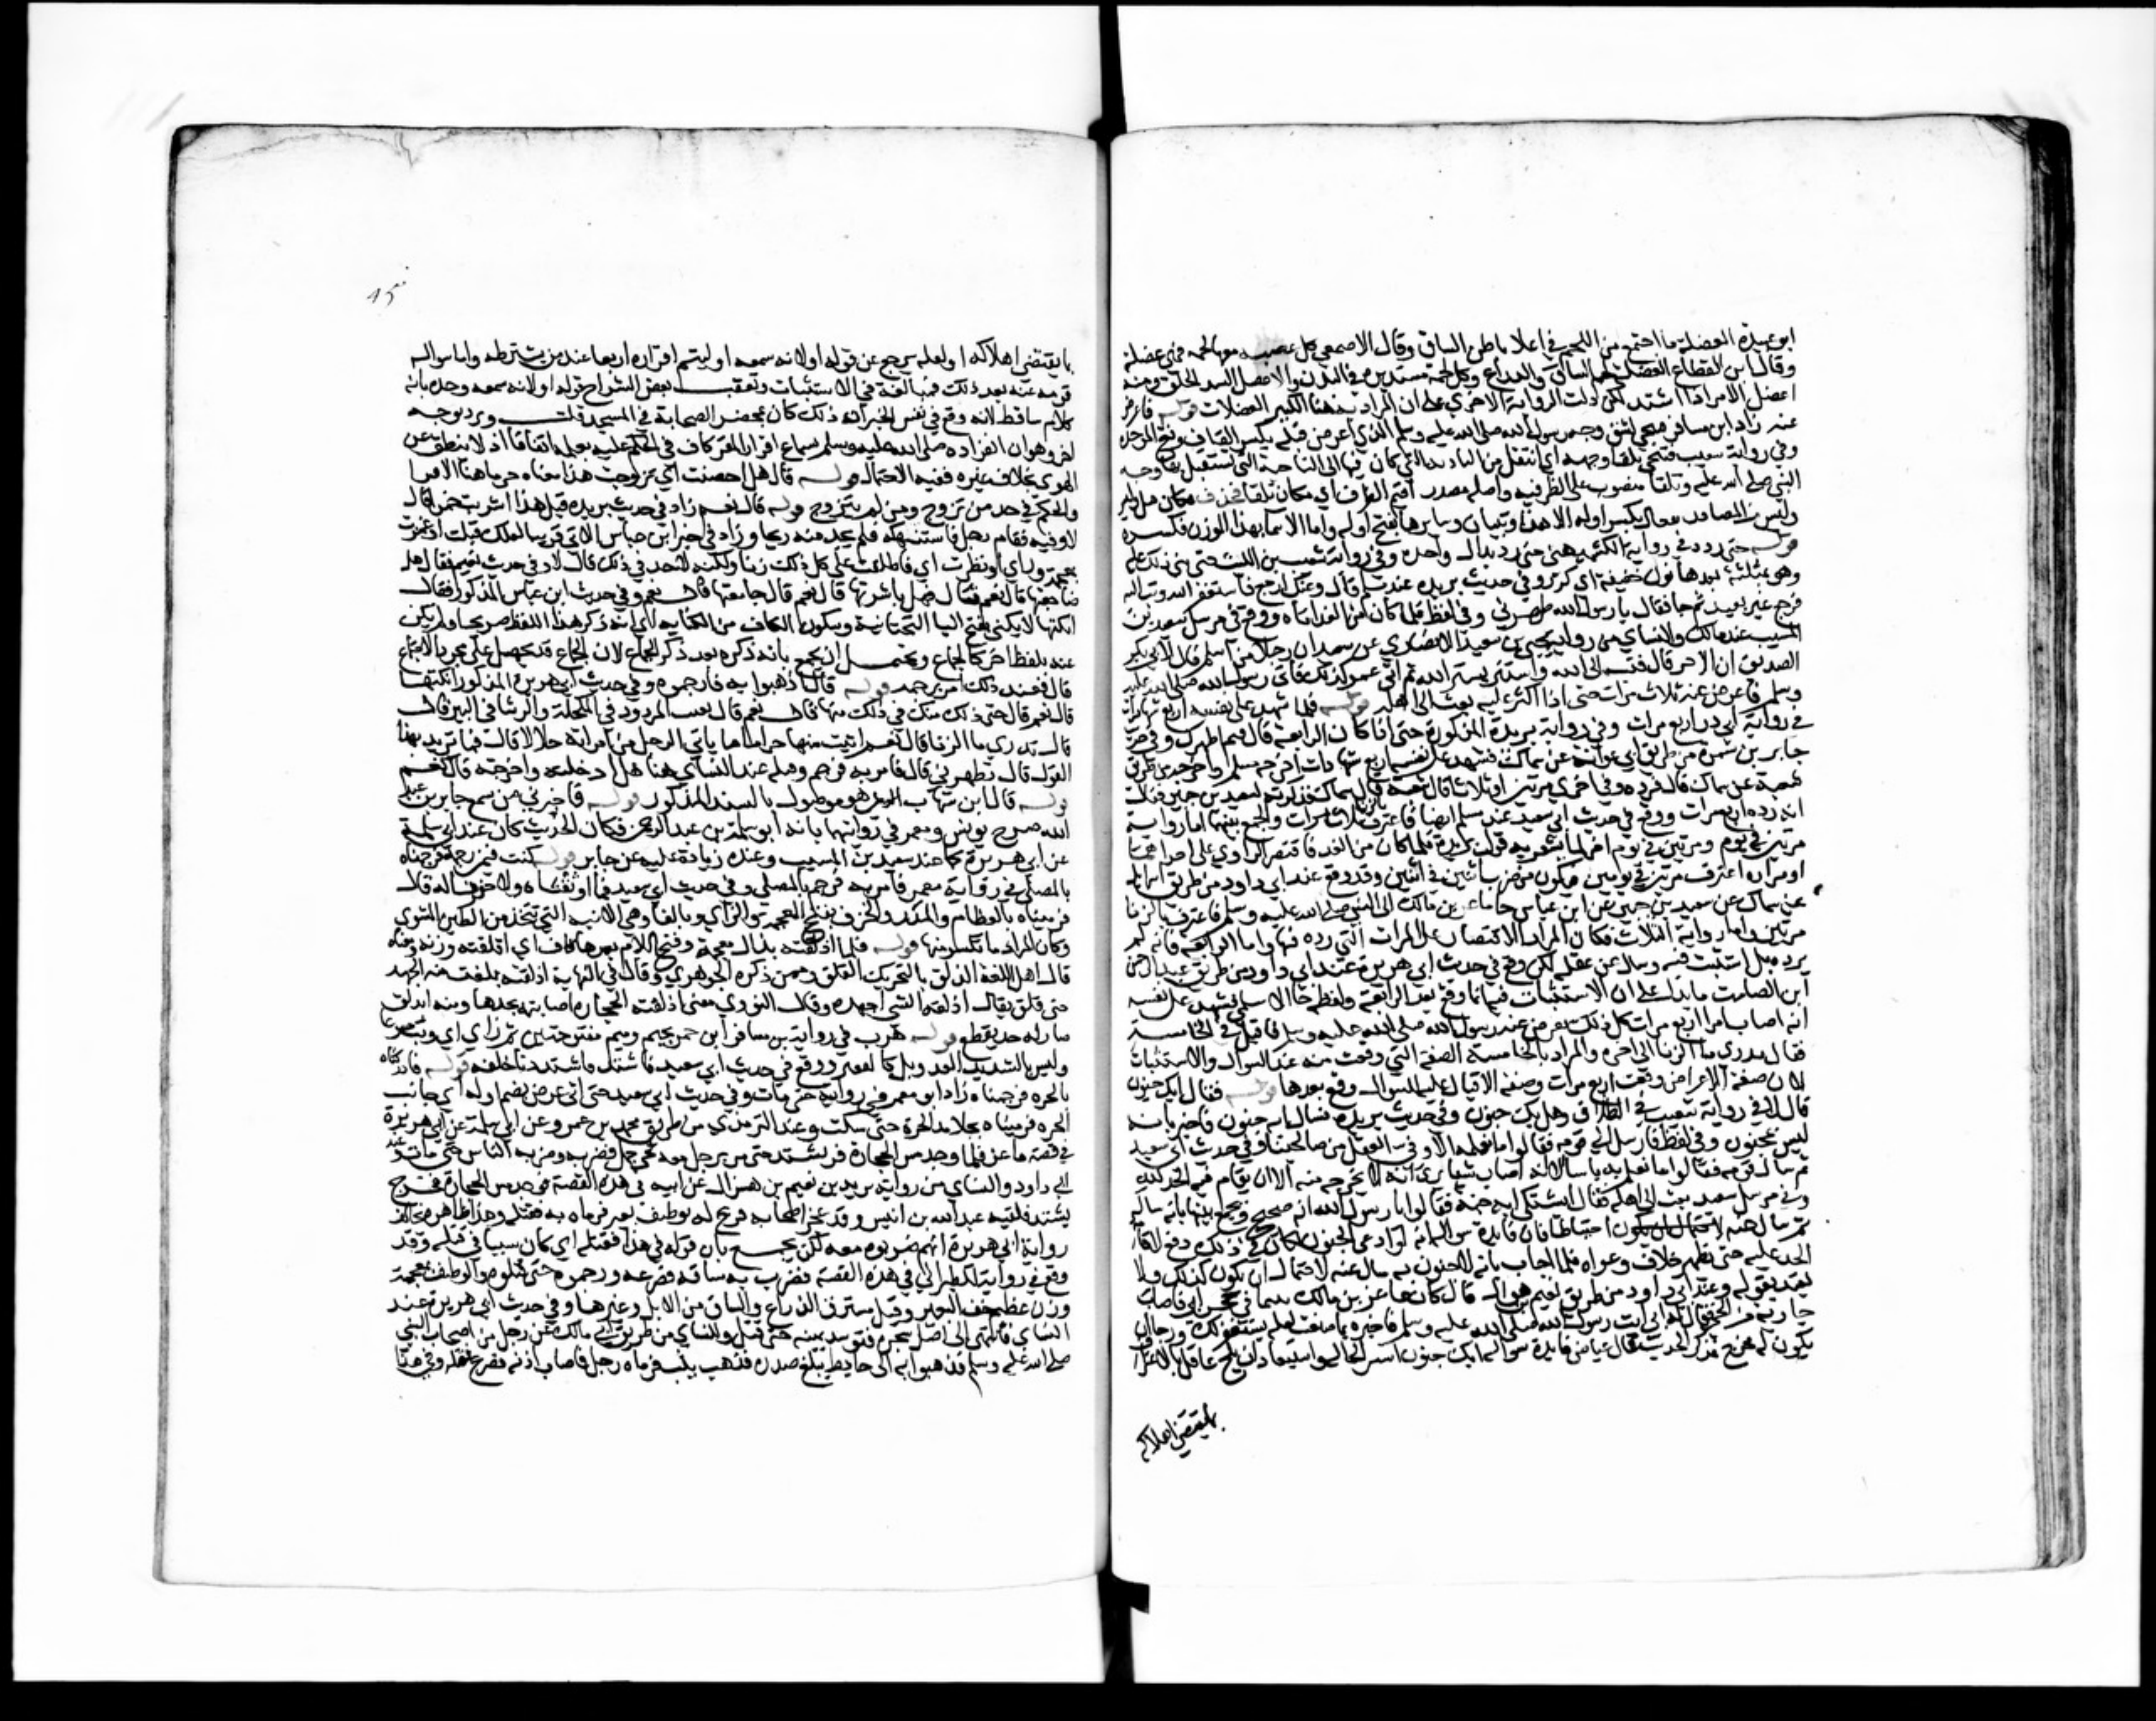 ابو عبيدة العضلة ما اجتمع من اللحم في اعلا باطن الساق وقال الاصمعي كل عصبة معها لحم فهي عضلة
وقال ابن القطاع العضلة لحم الساق والذراع وكل لحمة مستديرة في البدن والاعضل الشديد الخلق ومنه
اعضل الامر اذا اشتد لكن دلت الرواية الاخرى على ان المراد به هنا الكثير العضلات قوله فاعرض
عنه زاد ابن مسافر فتنحى لشق وجه رسول الله صلى الله عليه وسلم الذي اعرض قبله بكسر القاف وفتح الموحدة
وفي رواية شعيب فتنحى تلقا وجهه اي انتقل من الناحية التي كان فيها الى الناحية التي يستقبل بها وجه
النبي صلى الله عليه وتلقا منصوب على الظرفية واصله مصدر اقيم الظرف اي مكان تلقا فحذف مكان قبل
وليس من المصادر تفعال بكسر اوله الا هذا وتبيان وسايرها بفتح اوله واما الاسما بهذا الوزن فكثيرة
قوله حتى ردد في رواية الكشميهني حتى رد بدال واحدة وفي رواية شعيب بن الليث حتى ثنى ذلك عليه
وهو بمثلثة بعدها نون خفيفة اي كرر وفي حديث بريدة عند مسلم قال ويحك ارجع فاستغفر الله وتب اليه
فرجع غير بعيد ثم جا فقال يا رسول الله طهرني وفي لفظ فلما كان من الغد اتاه ووقع في مرسل سعيد بن
المسيب عند مالك والنساي من رواية يحيى بن سعيد الانصاري عن سعيد ان رجلا من اسلم قال لابي بكر
الصديق ان الاخر قال فتب الى الله واستتر بستر الله ثم اتى عمر كذلك فاتى رسول الله صلى الله عليه
وسلم فاعرض عنه ثلاث مرات حتى اذا اكثر عليه بعث الى اهله قوله فلما شهد على نفسه اربع شهادات
في رواية ابي ذر اربع مرات وفي رواية بريدة المذكورة حتى اذا كان الرابعة قال فيم اطهرك وفي حديث
جابر بن سمرة من طريق ابي عوانة عن سماك فشهد على نفسه اربع شهادات اخرجه مسلم واخرجه من طريق
شعبة عن سماك قال فرده وفي اخرى مرتين او ثلاثا قال شعبة قال سماك فذكرته لسعيد بن جبير فقال
انه رده اربع مرات ووقع في حديث ابي سعيد عند مسلم ايضا فاعترف بالزنا ثلاث مرات والجمع بينها اما رواية
مرتين في يوم ومرتين في يوم اخر لما يشعر به قول بريدة فلما كان من الغد فاقتصر الراوي على احداهما
او مراده اعترف مرتين في يومين فيكون من ضرب اثنين في اثنين وقد وقع عند ابي داود من طريق اسرايل
عن سماك عن سعيد بن جبير عن ابن عباس جا ماعز بن مالك الى النبي صلى الله عليه وسلم فاعترف بالزنا
مرتين واما رواية الثلاث فكان المراد الاقتصار على المرات التي رده فيها واما الرابعة فانه لم
يرده بل استثبت فيه وسال عن عقله لكن وقع في حديث ابي هريرة عند ابي داود من طريق عبد الرحمن
ابن الصامت ما يدل على ان الاستثبات فيه انما وقع بعد الرابعة ولفظه جا الاسلمي فشهد على نفسه
انه اصاب امراة اربع مرات كل ذلك يعرض عنه رسول الله صلى الله عليه وسلم فاقبل في الخامسة
فقال تدري ما الزنا الى اخره والمراد بالخامسة الصفة التي وقعت منه عند السوال والاستثبات
لان صفة الاعراض وقعت اربع مرات وصفة الاقبال عليه للسوال وقع بعدها قوله فقال ابك جنون
قال لا في رواية شعيب في الطلاق وهل بك جنون وفي حديث بريدة فسال ابه جنون فاخبر بانه
ليس بمجنون وفي لفظ فارسل الى قومه فقالوا ما نعلمه الا وفي العقل من صالحينا وفي حديث ابي سعيد
ثم سال قومه فقالوا ما نعلم به باسا الا انه اصاب شيئا يرى انه لا يخرجه منه الا ان يقام فيه الحد لله
وفي مرسل سعيد بعث الى اهله فقال اشتكى ابه جنة فقالوا يا رسول الله انه صحيح ويجمع بينهما بانه ساله
ثم سال عنه احتياطا فان فايدة سواله انه لو ادعى الجنون لكان في ذلك دفع لاقامة
الحد عليه حتى يظهر خلاف دعواه فلما اجاب بانه لا جنون به سال عنه لاحتمال ان يكون كذلك ولا
يعتد بقوله وعند ابي داود من طريق نعيم بن هزال قال كان ماعز بن مالك يتيما في حجر ابي فاصاب
جارية من الحي فقال له ابي ايت رسول الله صلى الله عليه وسلم فاخبره بما صنعت لعله يستغفر لك ورجا ان
يكون له مخرج فذكر الحديث فقال عياض فايدة سواله ابك جنون استبرا لحاله واستبعاد ان يلح عاقل بالاعتراف
بما يقتضي اهلاكه
بما يقتضي اهلاكه او لعله يرجع عن قوله او لانه سمعه او ليتم اقراره اربعا عند من يشترطه واما سواله
قومه عنه بعد ذلك فمبالغة في الاستثبات وتعقب بعض الشراح قوله او لانه سمعه وحده بانه
كلام ساقط لانه وقع في نفس الخبر انه ذلك كان بمحضر الصحابة في المسجد قلت ويرد بوجه
اخر وهو ان انفراده صلى الله عليه وسلم بسماع اقرار المقر كاف في الحكم عليه بعلمه اتفاقا اذ لا ينطق عن
الهوى بخلاف غيره ففيه الاحتمال قوله قال هل احصنت اي تزوجت هذا معناه جزما هنا لافتراق
والحكم في حد من تزوج ومن لم يتزوج قوله قال نعم زاد في حديث بريدة قبل هذا اشربت خمرا قال
لا وفيه فقام رجل فاستنكهه فلم يجد منه ريحا وزاد في حديث ابن عباس الاتي قريبا لعلك قبلت او غمزت
بمعجمة وزاي او نظرت اي فاطلقت على كل ذلك زنا ولكنه لا حد في ذلك قال لا وفي حديث نعيم فقال هل
ضاجعتها قال نعم فقال فهل باشرتها قال نعم قال جامعتها قال نعم وفي حديث ابن عباس المذكور فقال
انكتها لا يكني بفتح اليا التحتانية وسكون الكاف من الكناية اي انه ذكر هذا اللفظ صريحا ولم يكن
عنه بلفظ اخر كالجماع ويحتمل ان يجمع بانه ذكره بعد ذكر الجماع لان الجماع قد يحصل على مجرد الاجتماع
قال فعند ذلك امر برجمه قوله قال اذهبوا به فارجموه وفي حديث ابي هريرة المذكور انكتها
قال نعم قال حتى ذلك منك في ذلك منها قال نعم قال يغيب المرود في المكحلة والرشا في البير قال
قال تدري ما الزنا قال نعم اتيت منها حراما ما ياتي الرجل من امراته حلالا قال فما تريد بهذا
القول قال تطهرني قال فامر به فرجم وقبله عند النساي هنا هل ادخلته واخرجته قال نعم
قوله قال ابن شهاب هو موصول بالسند المذكور قوله فاخبرني من سمع جابر بن عبد
الله صرح يونس ومعمر في روايتهما بانه ابو سلمة بن عبد الرحمن فكان الحديث كان عند ابي سلمة
عن ابي هريرة كما عند سعيد بن المسيب وعنده زيادة عليه عن جابر قوله كنت فيمن رجمه فرجمناه
بالمصلى في رواية معمر فامر به فرجم بالمصلى وفي حديث ابي سعيد فما اوثقناه ولا حفرنا له قال
فرميناه بالعظام والمدر والخزف بفتح المعجمة والزاي وبالفا وهي الانية التي تتخذ من الطين المشوي
وكان المراد ما تكسر منها قوله فلما اذلقته بذال معجمة وفتح اللام بعدها قاف اي اقلقته وزنه ومعناه
قال اهل اللغة الذلق بالتحريك القلق وممن ذكره الجوهري وقال في النهاية اذلقته بلغت منه الجهد
حتى قلق يقال اذلقه الشي اجهده وقال النووي معنى اذلقته الحجارة اصابته بحدها ومنه انذلق
صار له حد يقطع قوله هرب في رواية بن مسافر ابن جمز بجيم وميم مفتوحتين ثم زاي اي وثب مسرعا
وليس بالشديد العدو بل كالقفز ووقع في حديث ابي سعيد فاشتد فاشتددنا خلفه قوله فادركناه
بالحرة فرجمناه زاد ابو معمر في روايته حتى مات وفي حديث ابي سعيد حتى اتى عرض بضم اوله اي جانب
الحرة فرميناه بجلاميد الحرة حتى سكت وعند الترمذي من طريق محمد بن عمرو عن ابي سلمة عن ابي هريرة
في قصة ماعز فلما وجد مس الحجارة فر يشتد حتى مر برجل معه لحي جمل فضربه وضربه الناس حتى مات وعند
ابي داود والنساي من رواية يزيد بن نعيم بن هزال عن ابيه في هذه القصة فوجد مس الحجارة فخرج
يشتد فلقيه عبد الله بن انيس وقد عجز اصحابه فنزع له بوظيف بعير فرماه به فقتله وهذا ظاهره يخالف
رواية ابي هريرة انهم ضربوه معه لكن يجمع بان قوله في هذا فقتله اي كان سببا في قتله وقد
وقع في رواية للطبراني في هذه القصة فضرب به ساقه فصرعه ورجموه حتى قتلوه والوظيف بمعجمة
وزن عظيم خف البعير وقيل مسترق الذراع والساق من الابل وغيرها وفي حديث ابي هريرة عند
النساي فانتهى الى اصل شجرة فتوسد يمينه حتى قتل وللنساي من طريق ابي مالك عن رجل من اصحاب النبي
صلى الله عليه وسلم فذهبوا به الى حايط يبلغ صدره فذهب يثب فرماه رجل فاصاب اذنه فصرع فقتله وفي هذا